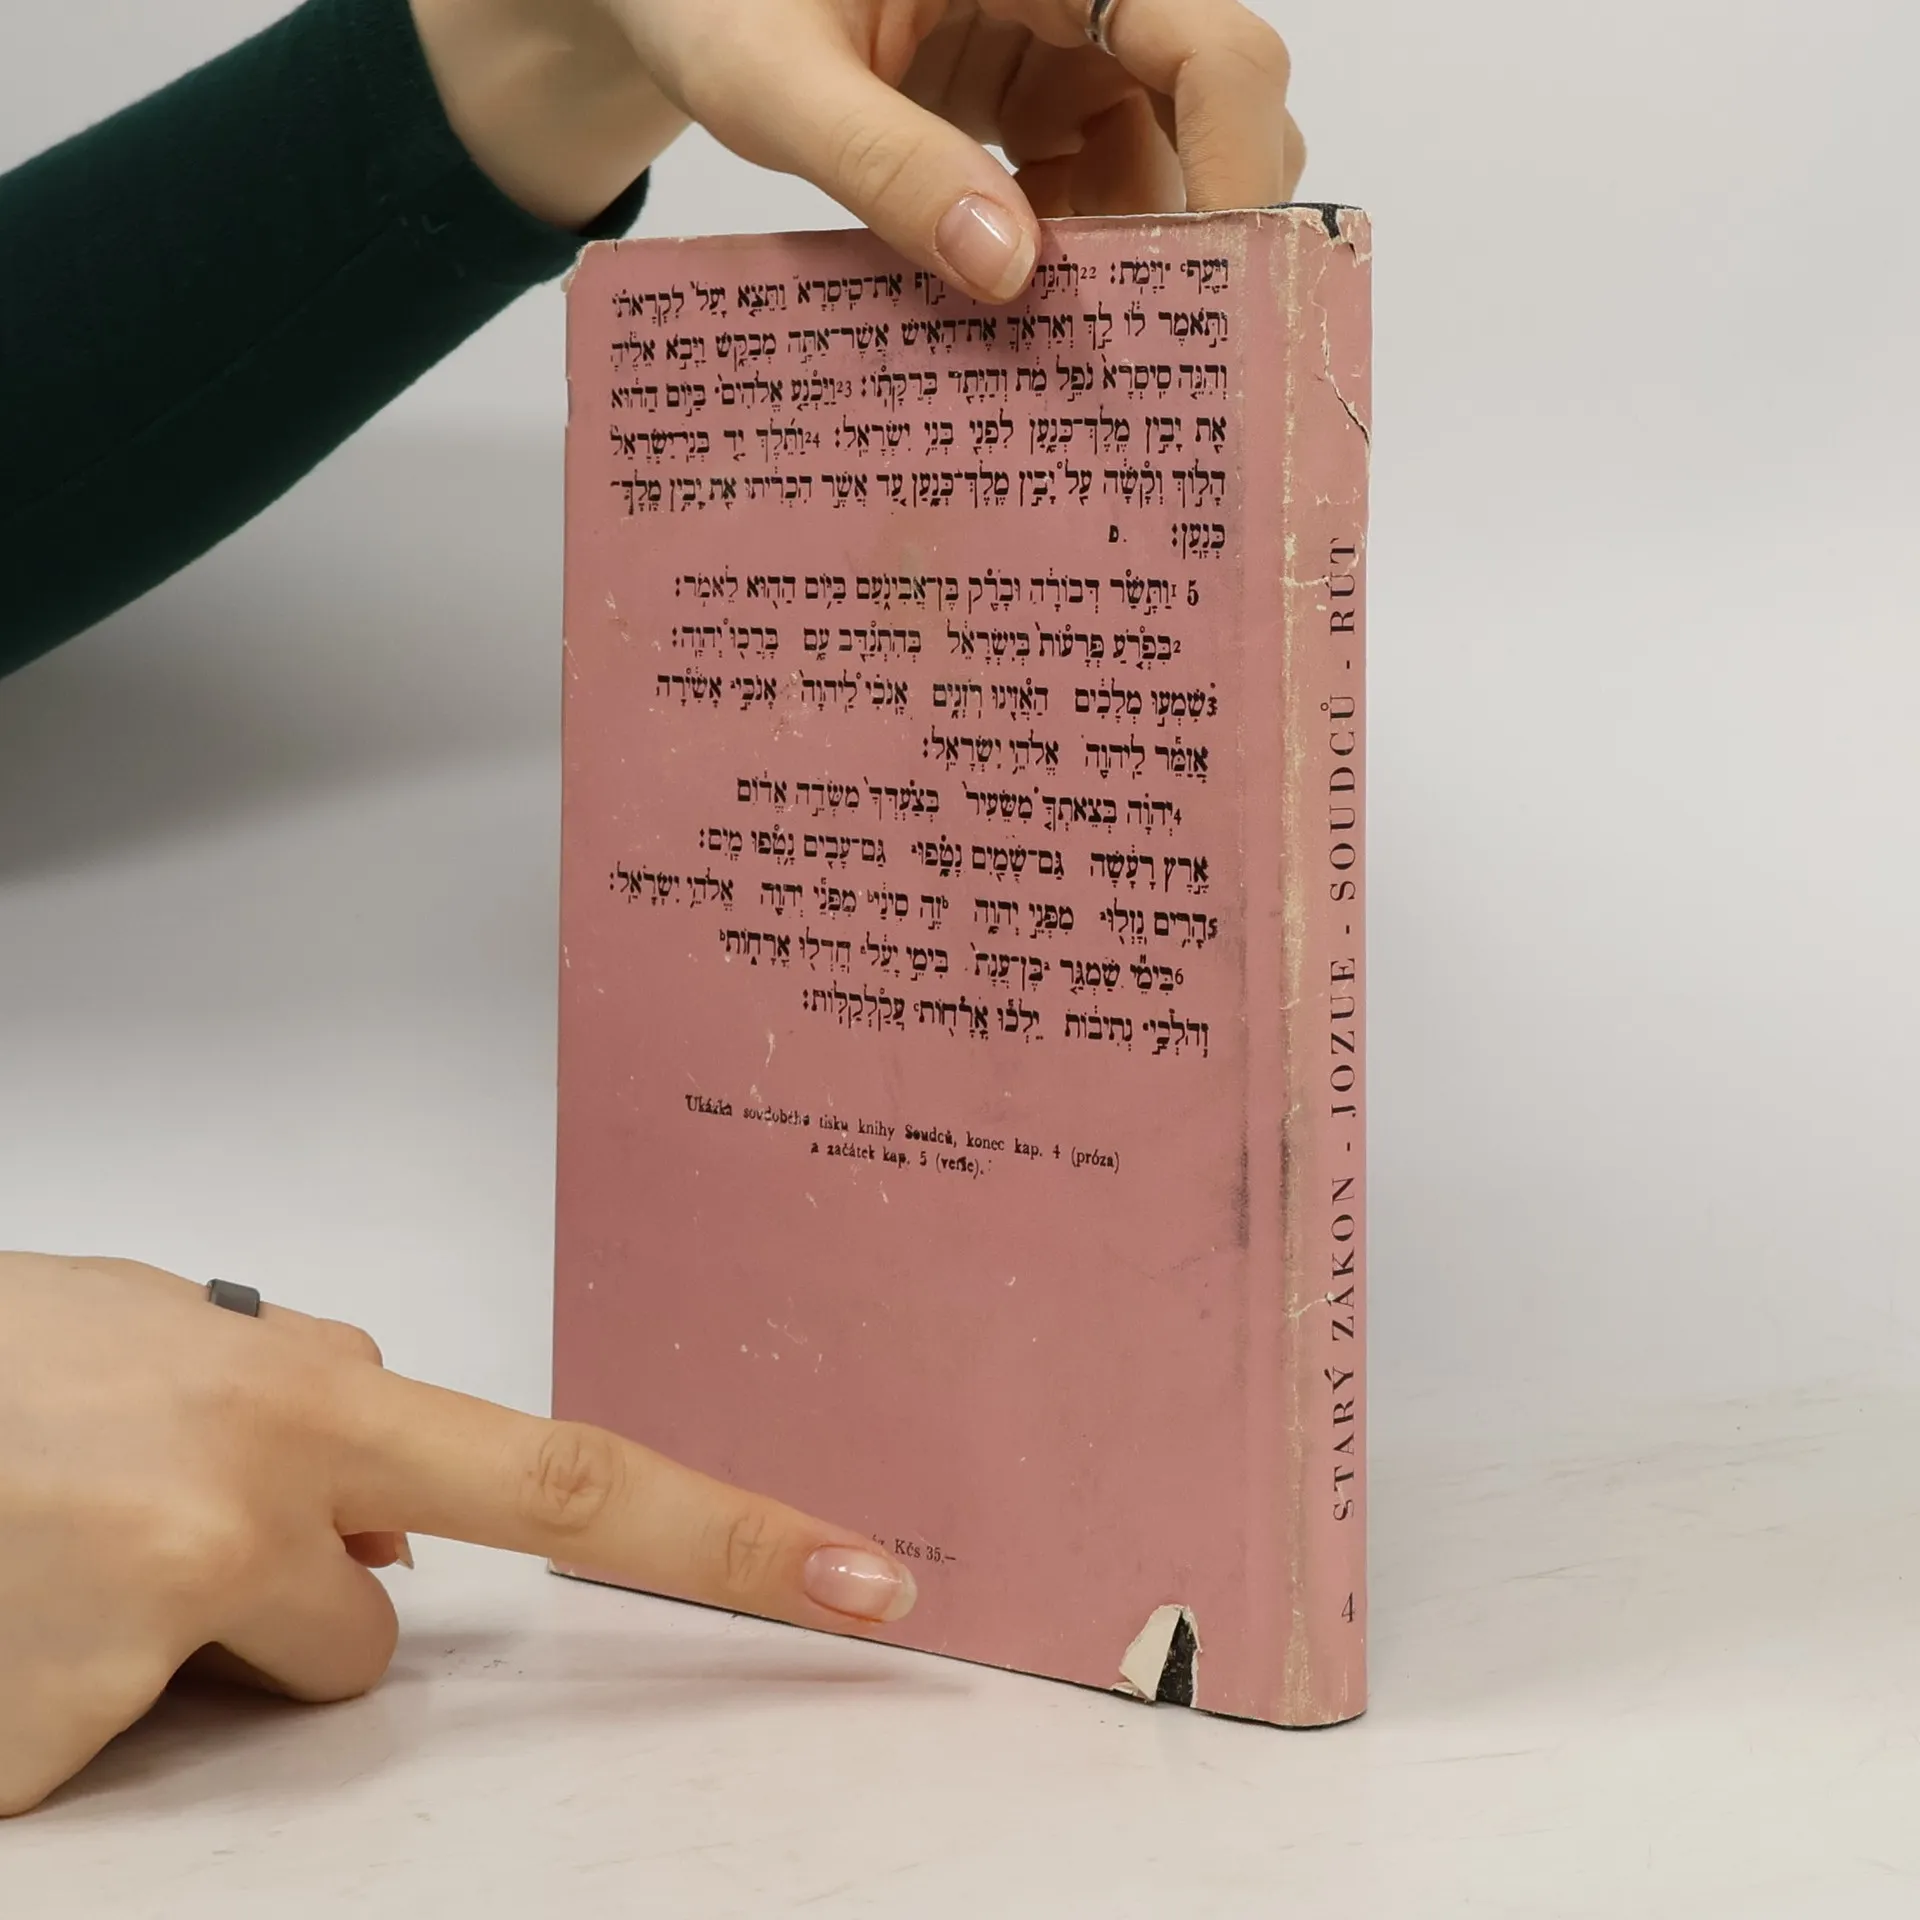 וַיָּ֖עַף וַיָּמֹֽת׃ 22וְהִנֵּ֣ה אֶת־סִֽיסְרָא֒ וַתֵּצֵ֤א יָעֵל֙ לִקְרָאת֔וֹ
וַתֹּ֣אמֶר ל֔וֹ לֵ֣ךְ וְאַרְאֶ֔ךָּ אֶת־הָאִ֖ישׁ אֲשֶׁר־אַתָּ֣ה מְבַקֵּ֑שׁ וַיָּבֹ֣א אֵלֶ֔יהָ
וְהִנֵּ֤ה סִֽיסְרָא֙ נֹפֵ֣ל מֵ֔ת וְהַיָּתֵ֖ד בְּרַקָּתֽוֹ׃ 23וַיַּכְנַ֤ע אֱלֹהִים֙ בַּיּ֣וֹם הַה֔וּא
אֵ֖ת יָבִ֣ין מֶֽלֶךְ־כְּנָ֑עַן לִפְנֵ֖י בְּנֵ֥י יִשְׂרָאֵֽל׃ 24וַתֵּ֜לֶךְ יַ֤ד בְּנֵֽי־יִשְׂרָאֵל֙
הָל֣וֹךְ וְקָשָׁ֔ה עַ֖ל יָבִ֣ין מֶֽלֶךְ־כְּנָ֑עַן עַ֚ד אֲשֶׁ֣ר הִכְרִ֔יתוּ אֵ֖ת יָבִ֥ין מֶֽלֶךְ־
כְּנָֽעַן׃ פ
5 1וַתָּ֣שַׁר דְּבוֹרָ֔ה וּבָרָ֖ק בֶּן־אֲבִינֹ֑עַם בַּיּ֥וֹם הַה֖וּא לֵאמֹֽר׃
2בִּפְרֹ֤עַ פְּרָעוֹת֙ בְּיִשְׂרָאֵ֔ל בְּהִתְנַדֵּ֖ב עָ֑ם בָּרֲכ֖וּ יְהוָֽה׃
3שִׁמְע֣וּ מְלָכִ֔ים הַאֲזִ֖ינוּ רֹֽזְנִ֑ים אָֽנֹכִ֗י לַֽיהוָה֙ אָנֹכִ֣י אָשִׁ֔ירָה
אֲזַמֵּ֕ר לַֽיהוָ֖ה אֱלֹהֵ֥י יִשְׂרָאֵֽל׃
4יְהוָ֗ה בְּצֵאתְךָ֤ מִשֵּׂעִיר֙ בְּצַעְדְּךָ֙ מִשְּׂדֵ֣ה אֱד֔וֹם
אֶ֣רֶץ רָעָ֔שָׁה גַּם־שָׁמַ֖יִם נָטָ֑פוּ גַּם־עָבִ֖ים נָ֥טְפוּ מָֽיִם׃
5הָרִ֥ים נָזְל֖וּ מִפְּנֵ֣י יְהוָ֑ה זֶ֣ה סִינַ֔י מִפְּנֵ֕י יְהוָ֖ה אֱלֹהֵ֥י יִשְׂרָאֵֽל׃
6בִּימֵ֞י שַׁמְגַּ֤ר בֶּן־עֲנָת֙ בִּימֵ֣י יָעֵ֔ל חָדְל֖וּ אֳרָח֑וֹת
וְהֹלְכֵ֣י נְתִיב֔וֹת יֵלְכ֕וּ אֳרָח֖וֹת עֲקַלְקַלּֽוֹת׃
Ukázka soudobého tisku knihy Soudců, konec kap. 4 (próza)
a začátek kap. 5 (verše).
Kčs 35,–
STARÝ ZÁKON - JOZUE - SOUDCŮ - RÚT
4